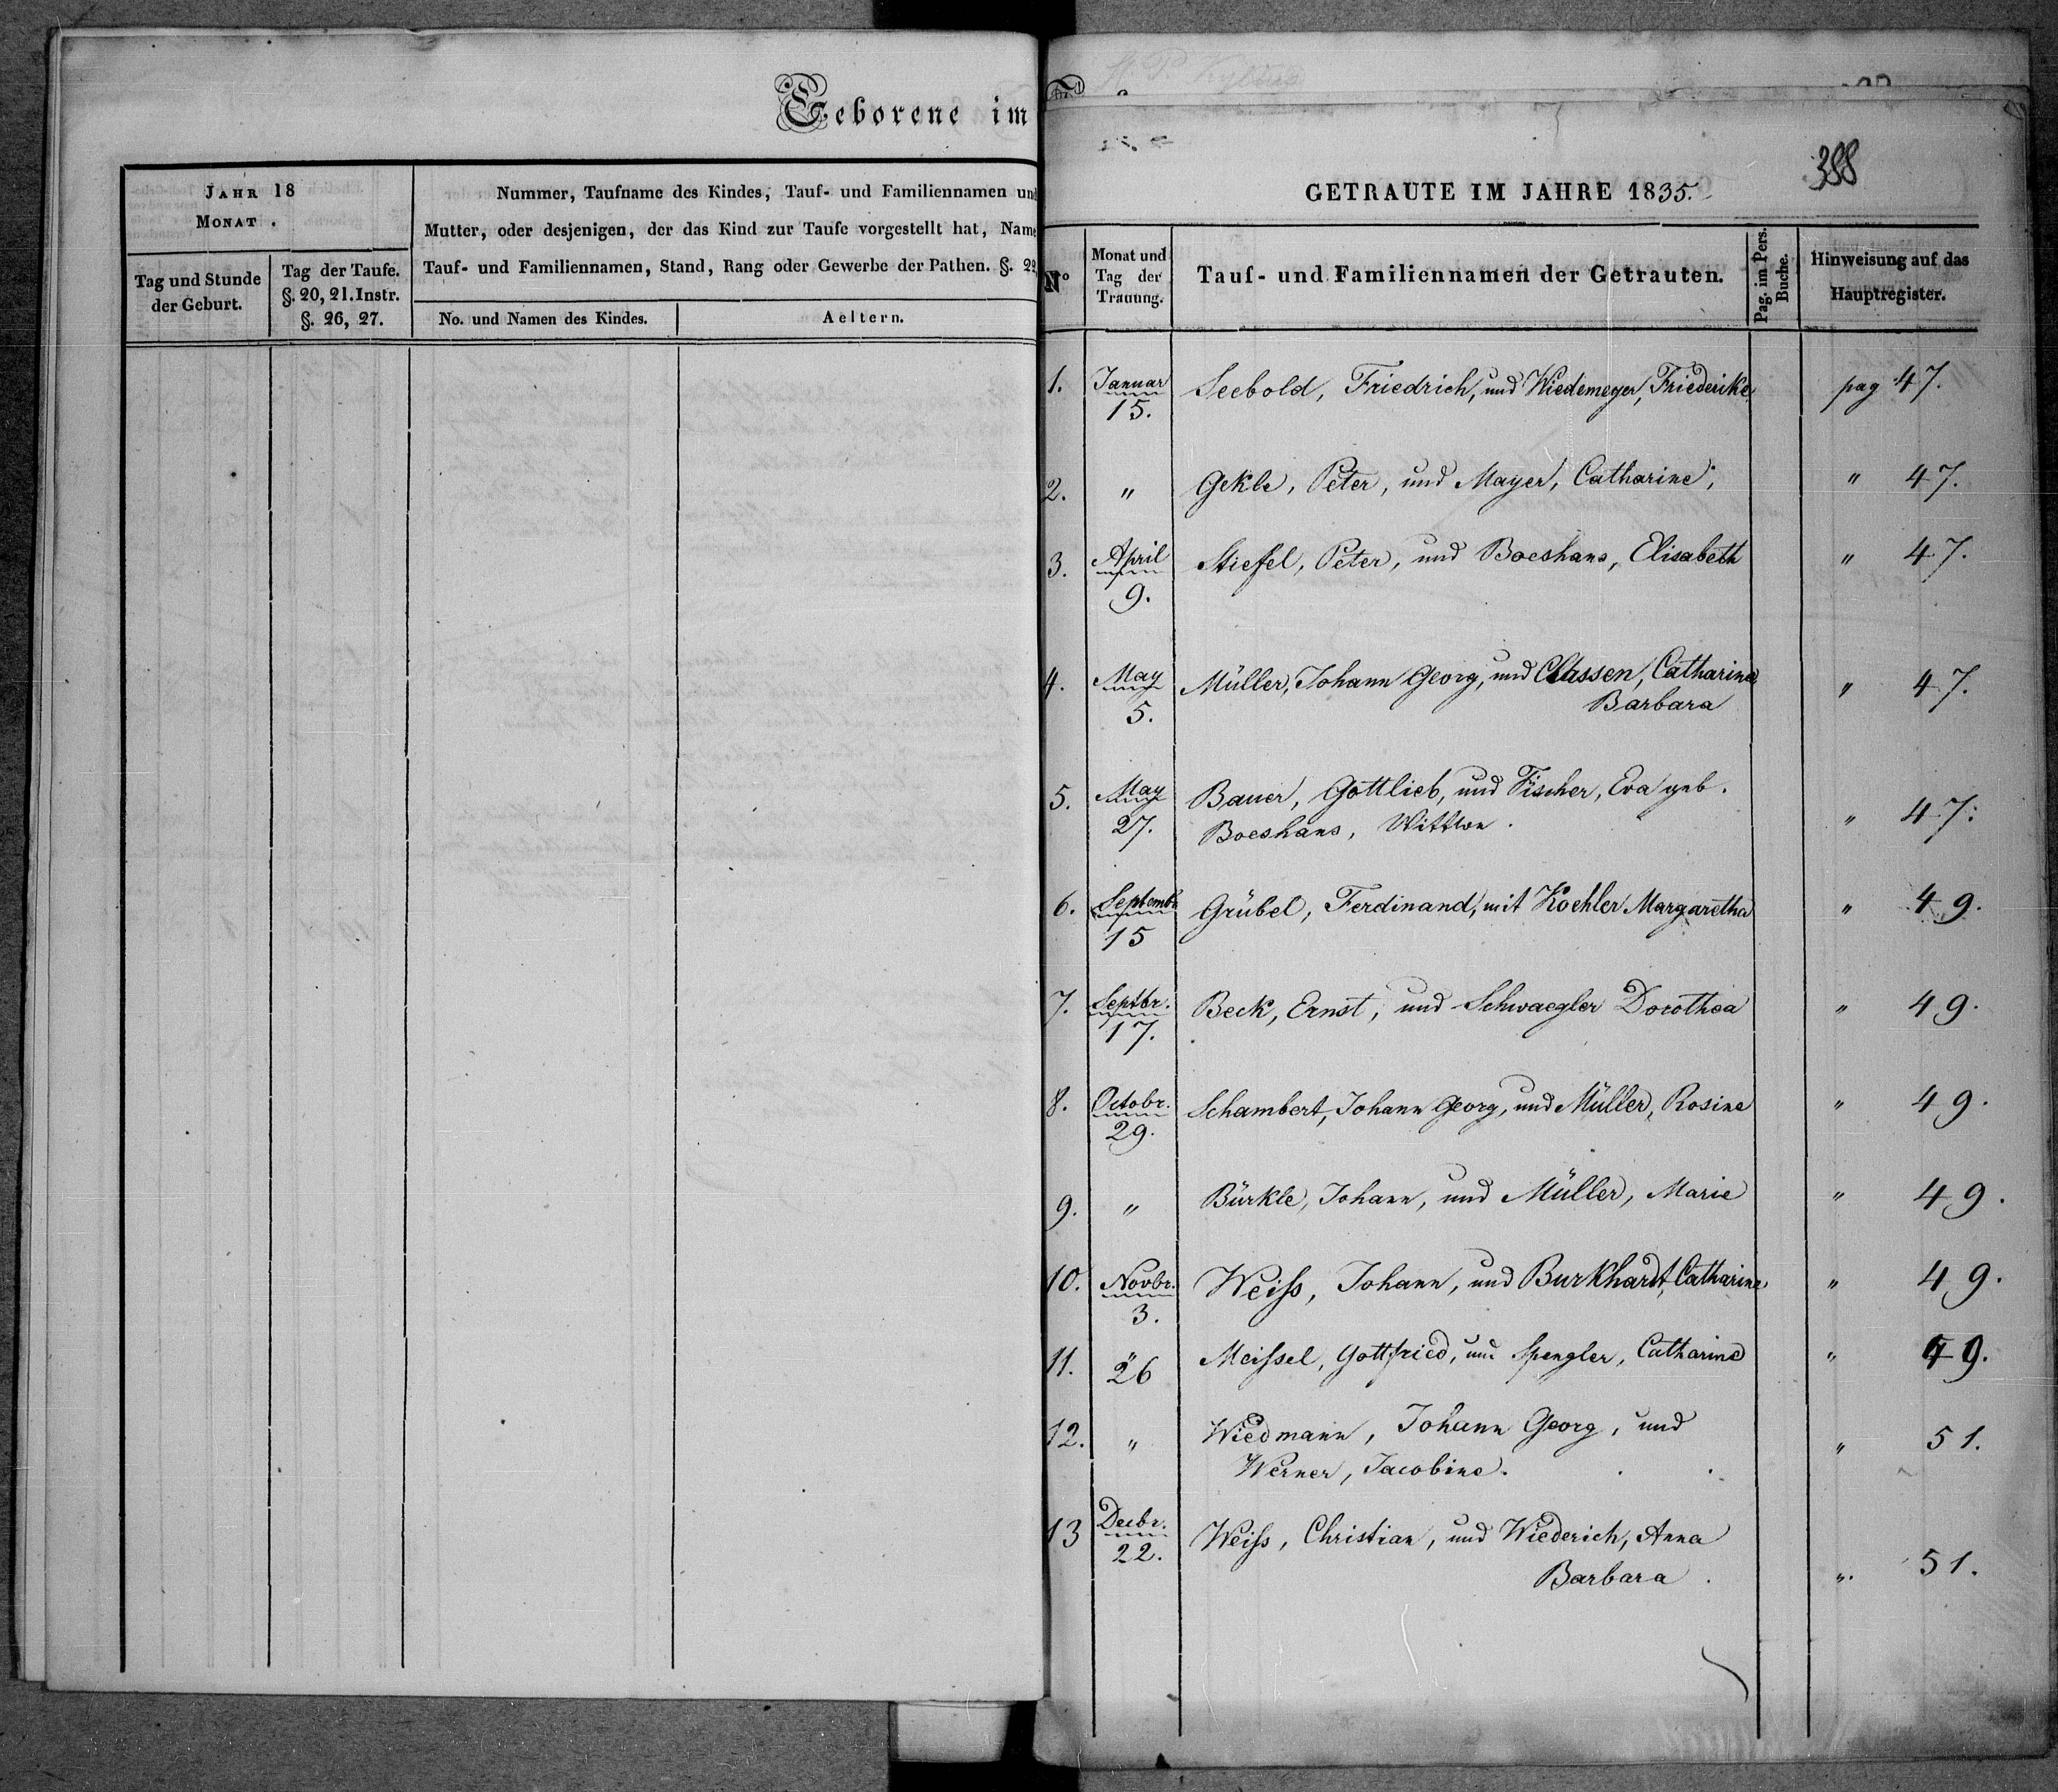 Geborene im
JAHR 18
MONAT .
Tag und Stunde
der Geburt.
Tag der Taufe.
§. 20, 21. Instr.
§. 26, 27.
Nummer, Taufname des Kindes, Tauf- und Familiennamen und
Mutter, oder desjenigen, der das Kind zur Taufe vorgestellt hat, Name
Tauf- und Familiennamen, Stand, Rang oder Gewerbe der Pathen. §. 22,
No. und Namen des Kindes.
Aeltern.
388
GETRAUTE IM JAHRE 1835.
No
Monat und
Tag der
Trauung.
Tauf- und Familiennamen der Getrauten.
Pag. im Pers.
Buche.
Hinweisung auf das
Hauptregister.
1. Januar Seebold, Friedrich, und Wiedemeyer, Friederike pag 47.
15.
2. " Gekle, Peter, und Mayer, Catharine; " 47.
3. April Stiefel, Peter, und Boeshans, Elisabeth " 47.
9.
4. May Müller, Johann Georg, und Classen, Catharina " 47.
5. Barbara
5. May Bauer, Gottlieb, und Fischer, Eva geb.
27. Boeshans, Wittwe. " 47.
6. Septembr Grübel, Ferdinand, mit Koehler Margaretha " 49.
15
7. Septbr. Beck, Ernst, und Schwaegler Dorothea " 49.
17.
8. Octobr. Schambert, Johann Georg, und Müller, Rosine " 49.
29.
9. " Bürkle, Johann, und Müller, Marie " 49.
10. Novbr. Weiſs, Johann, und Burkhardt, Catharine " 49.
3.
11. " 26 Meiſsel, Gottfried, und Spengler, Catharine " 49.
12. " Wiedmann, Johann Georg, und " 51.
Werner, Jacobine.
13 Decbr. Weiſs, Christian, und Wiederich, Anna
22. Barbara. " 51.